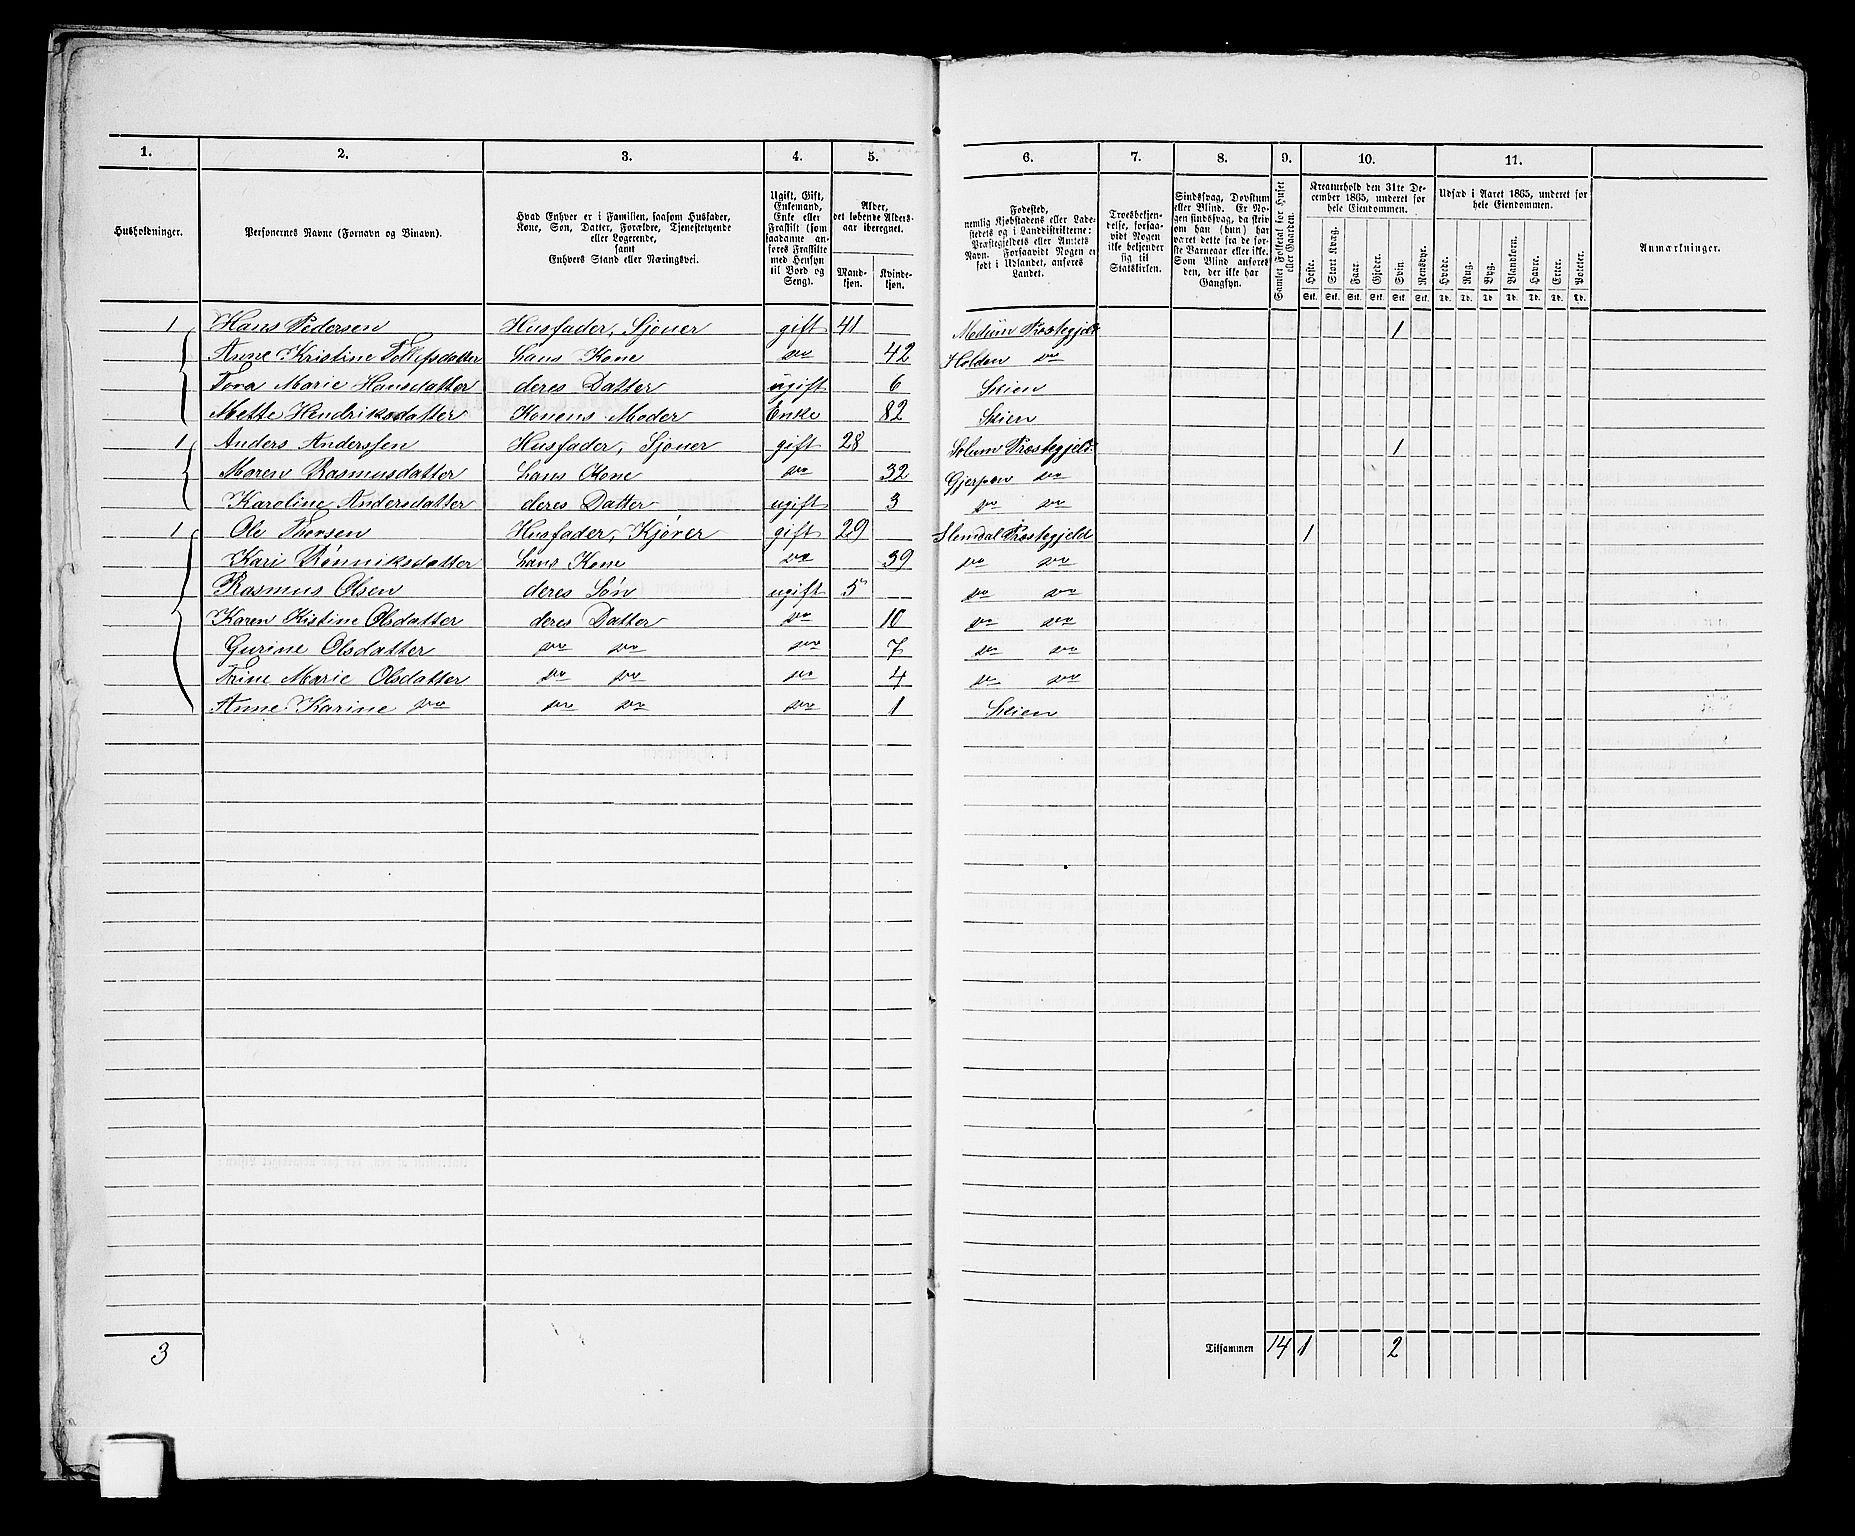 1. 2. 3. 4. 5. 6. 7. 8. 9. 10. 11.
Husholdninger.
Personernes Navne (Fornavn og Binavn).
Hvad Enhver er i Familien, saasom Husfader,
Kone, Søn, Datter, Forældre, Tjenestetyende
eller Logerende,
samt
Enhvers Stand eller Næringsvei.
Ugift, Gift,
Enkemand,
Enke eller
Fraskilt (som
saadanne an-
føres Fraskilte
med Hensyn
til Bord og
Seng).
Alder,
det løbende Alders-
aar iberegnet.
Mand-
kjøn.
Kvinde-
kjøn.
Fødested,
nemlig Kjøbstadens eller Lade-
stedets og i Landdistrikterne:
Præstegjeldets eller Amtets
Navn. Forsaavidt Nogen er
født i Udlandet, anføres
Landet.
Troesbekjen-
delse, forsaa-
vidt Nogen
ikke bekjender
sig til
Statskirken.
Sindssvag, Døvstum
eller Blind. Er No-
gen sindssvag, da skriv
om han (hun) har
været dette fra de før-
ste Barneaar eller ikke.
Som Blind anføres
den, der ikke har
Gangsyn.
Samlet Folketal for Huset
eller Gaarden.
Kreaturhold den 31te De-
cember 1865, underet for
hele Eiendommen.
Heste. Stort Kvæg. Faar. Gjeder. Svin. Rensdyr.
Stk. Stk. Stk. Stk. Stk. Stk.
Udsæd i Aaret 1865, underet for
hele Eiendommen.
Hvede. Rug. Byg. Blandkorn. Havre. Erter. Poteter.
Td. Td. Td. Td. Td. Td. Td.
Anmærkninger.
1 Hans Pedersen Husfader, Sjøuer gift 41 Modum Præstegjeld 1
Anne Kristine Tollefsdatter hans Kone do 42 Holden do
Tora Marie Hansdatter deres Datter ugift 6 Skien
Mette Hendriksdatter Konens Moder Enke 82 Skien
1 Anders Anderssen Husfader, Sjøuer gift 28 Solum Præstegjeld. 1
Maren Rasmusdatter hans Kone do 32 Gjerpen do
Karoline Andersdatter deres Datter ugift 3 do do
1 Ole Thorsen Husfader, Kjører gift 29 Slemdal Præstegjeld 1
Kari Rønniksdatter hans Kone do 39 do do
Rasmus Olsen deres Søn ugift 5 do do
Karen Kistine Olsdatter deres Datter do 10 do do
Gurine Olsdatter do do do 7 do do
Trine Marie Olsdatter do do do 4 do do
Anne Karine do do do do 1 Skien
3 Tilsammen 14 1 2